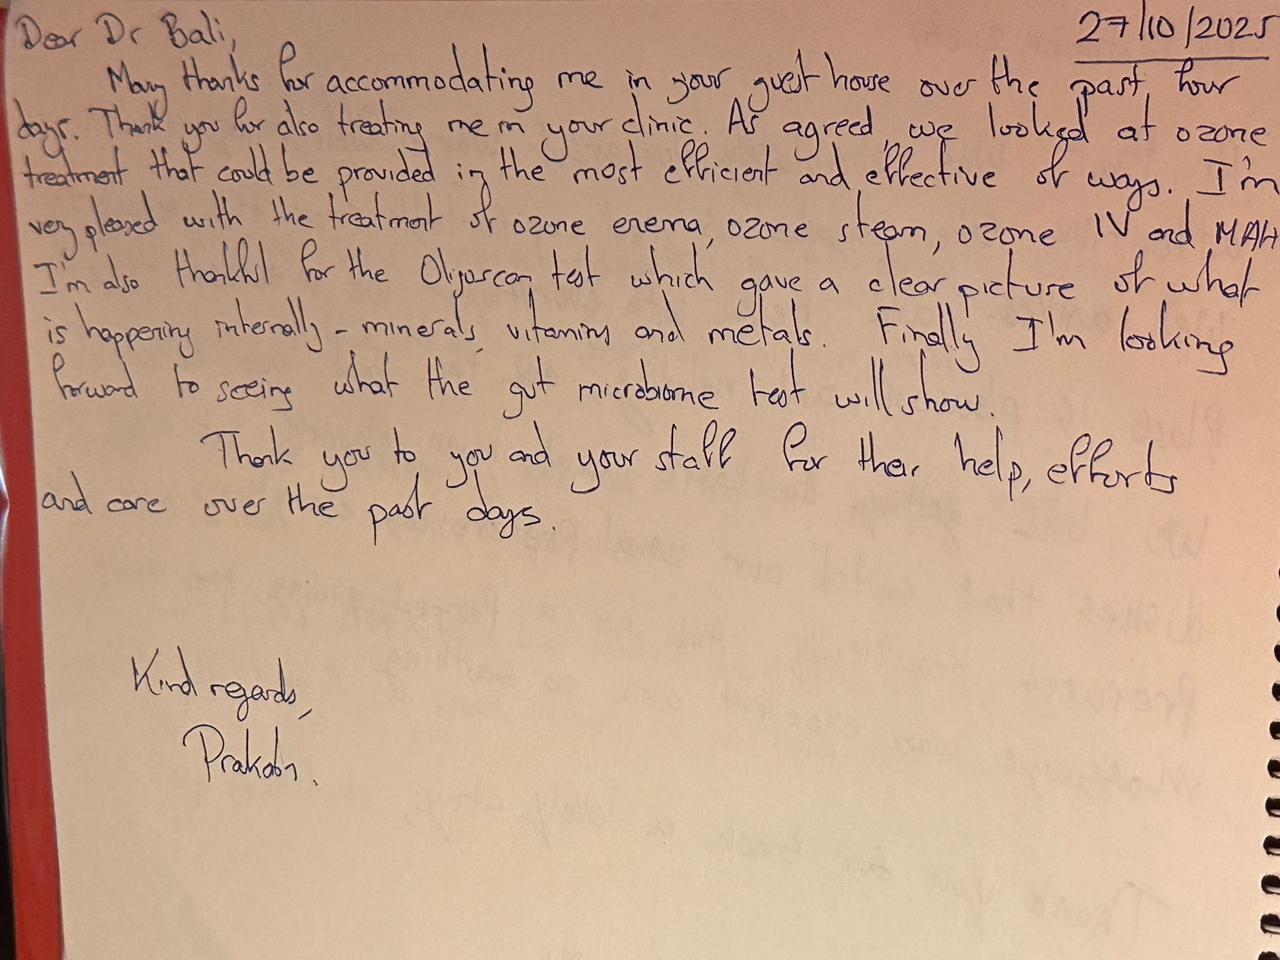 27/10/2025
Dear Dr Bali,
Many thanks for accommodating me in your guest house over the past four
days. Thank you for also treating me in your clinic. As agreed, we looked at ozone
treatment that could be provided in the most efficient and effective of ways. I'm
very pleased with the treatment of ozone enema, ozone steam, ozone IV and MAH
I'm also thankful for the Oligoscan test which gave a clear picture of what
is happening internally - minerals, vitamins and metals. Finally I'm looking
forward to seeing what the gut microbiome test will show.
Thank you to you and your staff for their help, efforts
and care over the past days.
Kind regards,